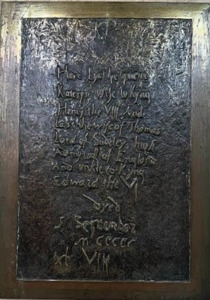 Here lyethe quene
Kateryn Wife to Kyng
Henry the VIII And
Last the wife of Thomas
Lord of Sudeley high
Admyrall of England
And vnkle to Kyng
Edward the VI
Dyed
5 September
MCCCCC
XLVIII